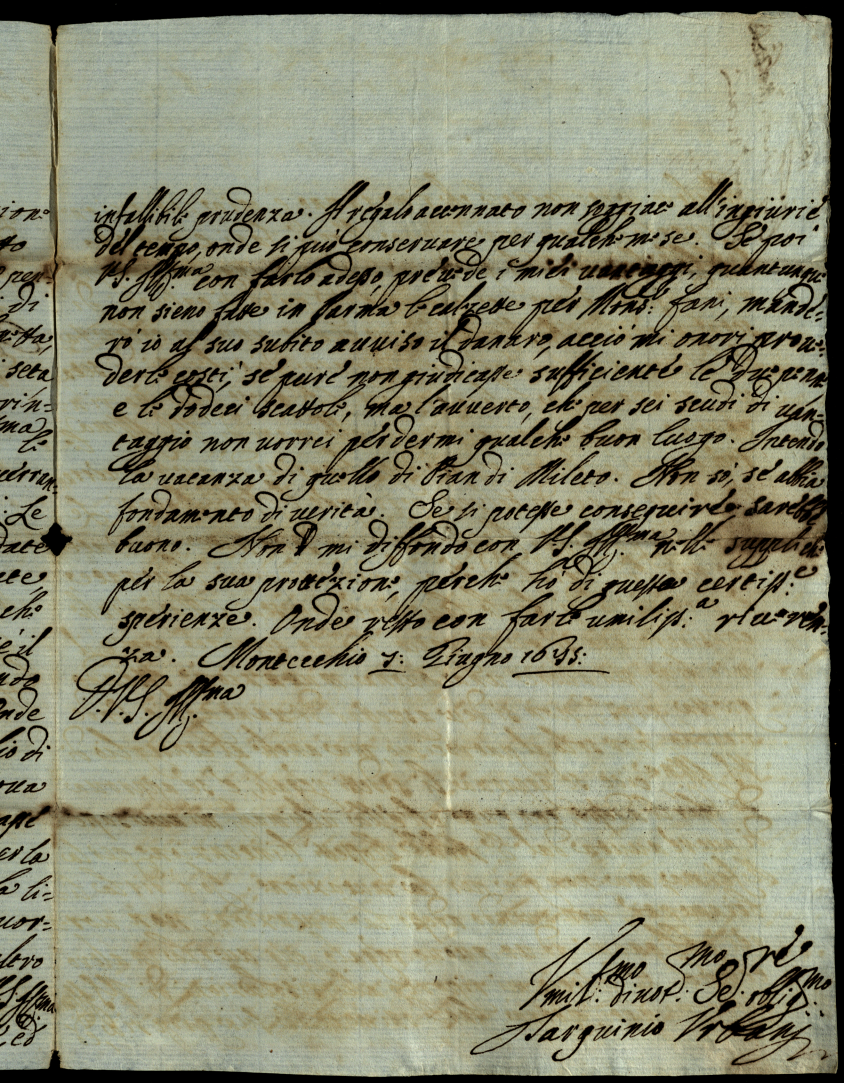 infallibile prudenza. Il regalo accennato non soggiace all'ingiurie
del tempo, onde si può conservare per qualche mese. Se poi
V.S. Ill.ma con farlo adesso, prevede i miei vantaggi, quantunque
non sieno fatte in Parma le calzette per Mons.r Fani, mande=
rò io al suo subito avviso il danaro, acciò mi onori prove=
derle costì, se pure non giudicasse sufficiente le due penne
e le dodeci scattole, ma l'avverto, che per sei scudi di van=
taggio non vorrei perdermi qualche buon luogo. Intendo
la vacanza di quello di Pian di Mileto. Non sò, se abbia
fondamento di verità. Se si potesse conseguire sarebbe
buono. Non mi diffondo con V.S. Ill.ma nelle suppliche
per la sua protezione, perche hò di questa certiss.e
sperienze. Onde resto con farle umiliss.a riveren=
za. Montecchio 7: Giugno
D. V.S. Ill.ma
Vmil.mo divot.mo Se.re oblig.mo
Tarquinio Vrbani
ione
tto
per=
di
seta
rin=
ma
le
Le
date
che
è il
ndo
onde
io di
er la
a li=
vor=
ltro
ed